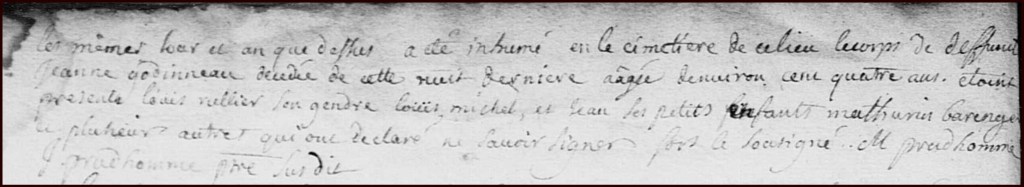 les mêmes iour et an que dessus a eté inhumé en le cimetiere de ce lieu le corps de deffunte
jeanne godinneau decedée de cette nuit derniere aagée denuiron cent quatre ans. étoint
presents louis rullier son gendre louis, michel, et jean ses petits enfants mathurin barenge
et plusieurs autres qui ont declaré ne sauoir signer fors le sousigné .. M prudhomme
prudhomme ptre susdit